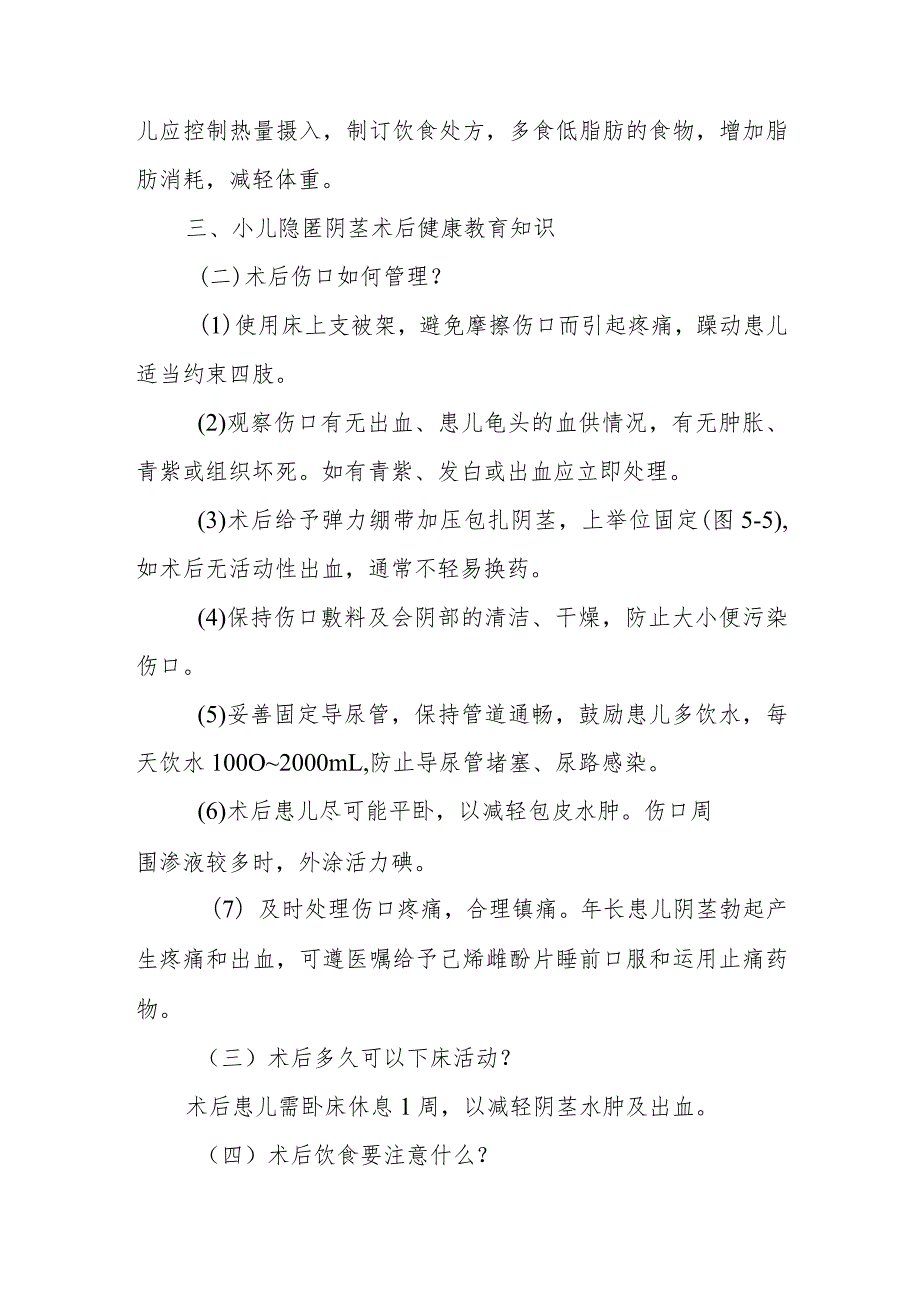 儿应控制热量摄入，制订饮食处方，多食低脂肪的食物，增加脂
肪消耗，减轻体重。
三、小儿隐匿阴茎术后健康教育知识
(二)术后伤口如何管理？
(1)使用床上支被架，避免摩擦伤口而引起疼痛，躁动患儿
适当约束四肢。
(2)观察伤口有无出血、患儿龟头的血供情况，有无肿胀、
青紫或组织坏死。如有青紫、发白或出血应立即处理。
(3)术后给予弹力绷带加压包扎阴茎，上举位固定(图5-5),
如术后无活动性出血，通常不轻易换药。
(4)保持伤口敷料及会阴部的清洁、干燥，防止大小便污染
伤口。
(5)妥善固定导尿管，保持管道通畅，鼓励患儿多饮水，每
天饮水100O~2000mL,防止导尿管堵塞、尿路感染。
(6)术后患儿尽可能平卧，以减轻包皮水肿。伤口周
围渗液较多时，外涂活力碘。
（7）及时处理伤口疼痛，合理镇痛。年长患儿阴茎勃起产
生疼痛和出血，可遵医嘱给予己烯雌酚片睡前口服和运用止痛药
物。
（三）术后多久可以下床活动？
术后患儿需卧床休息1周，以减轻阴茎水肿及出血。
（四）术后饮食要注意什么？